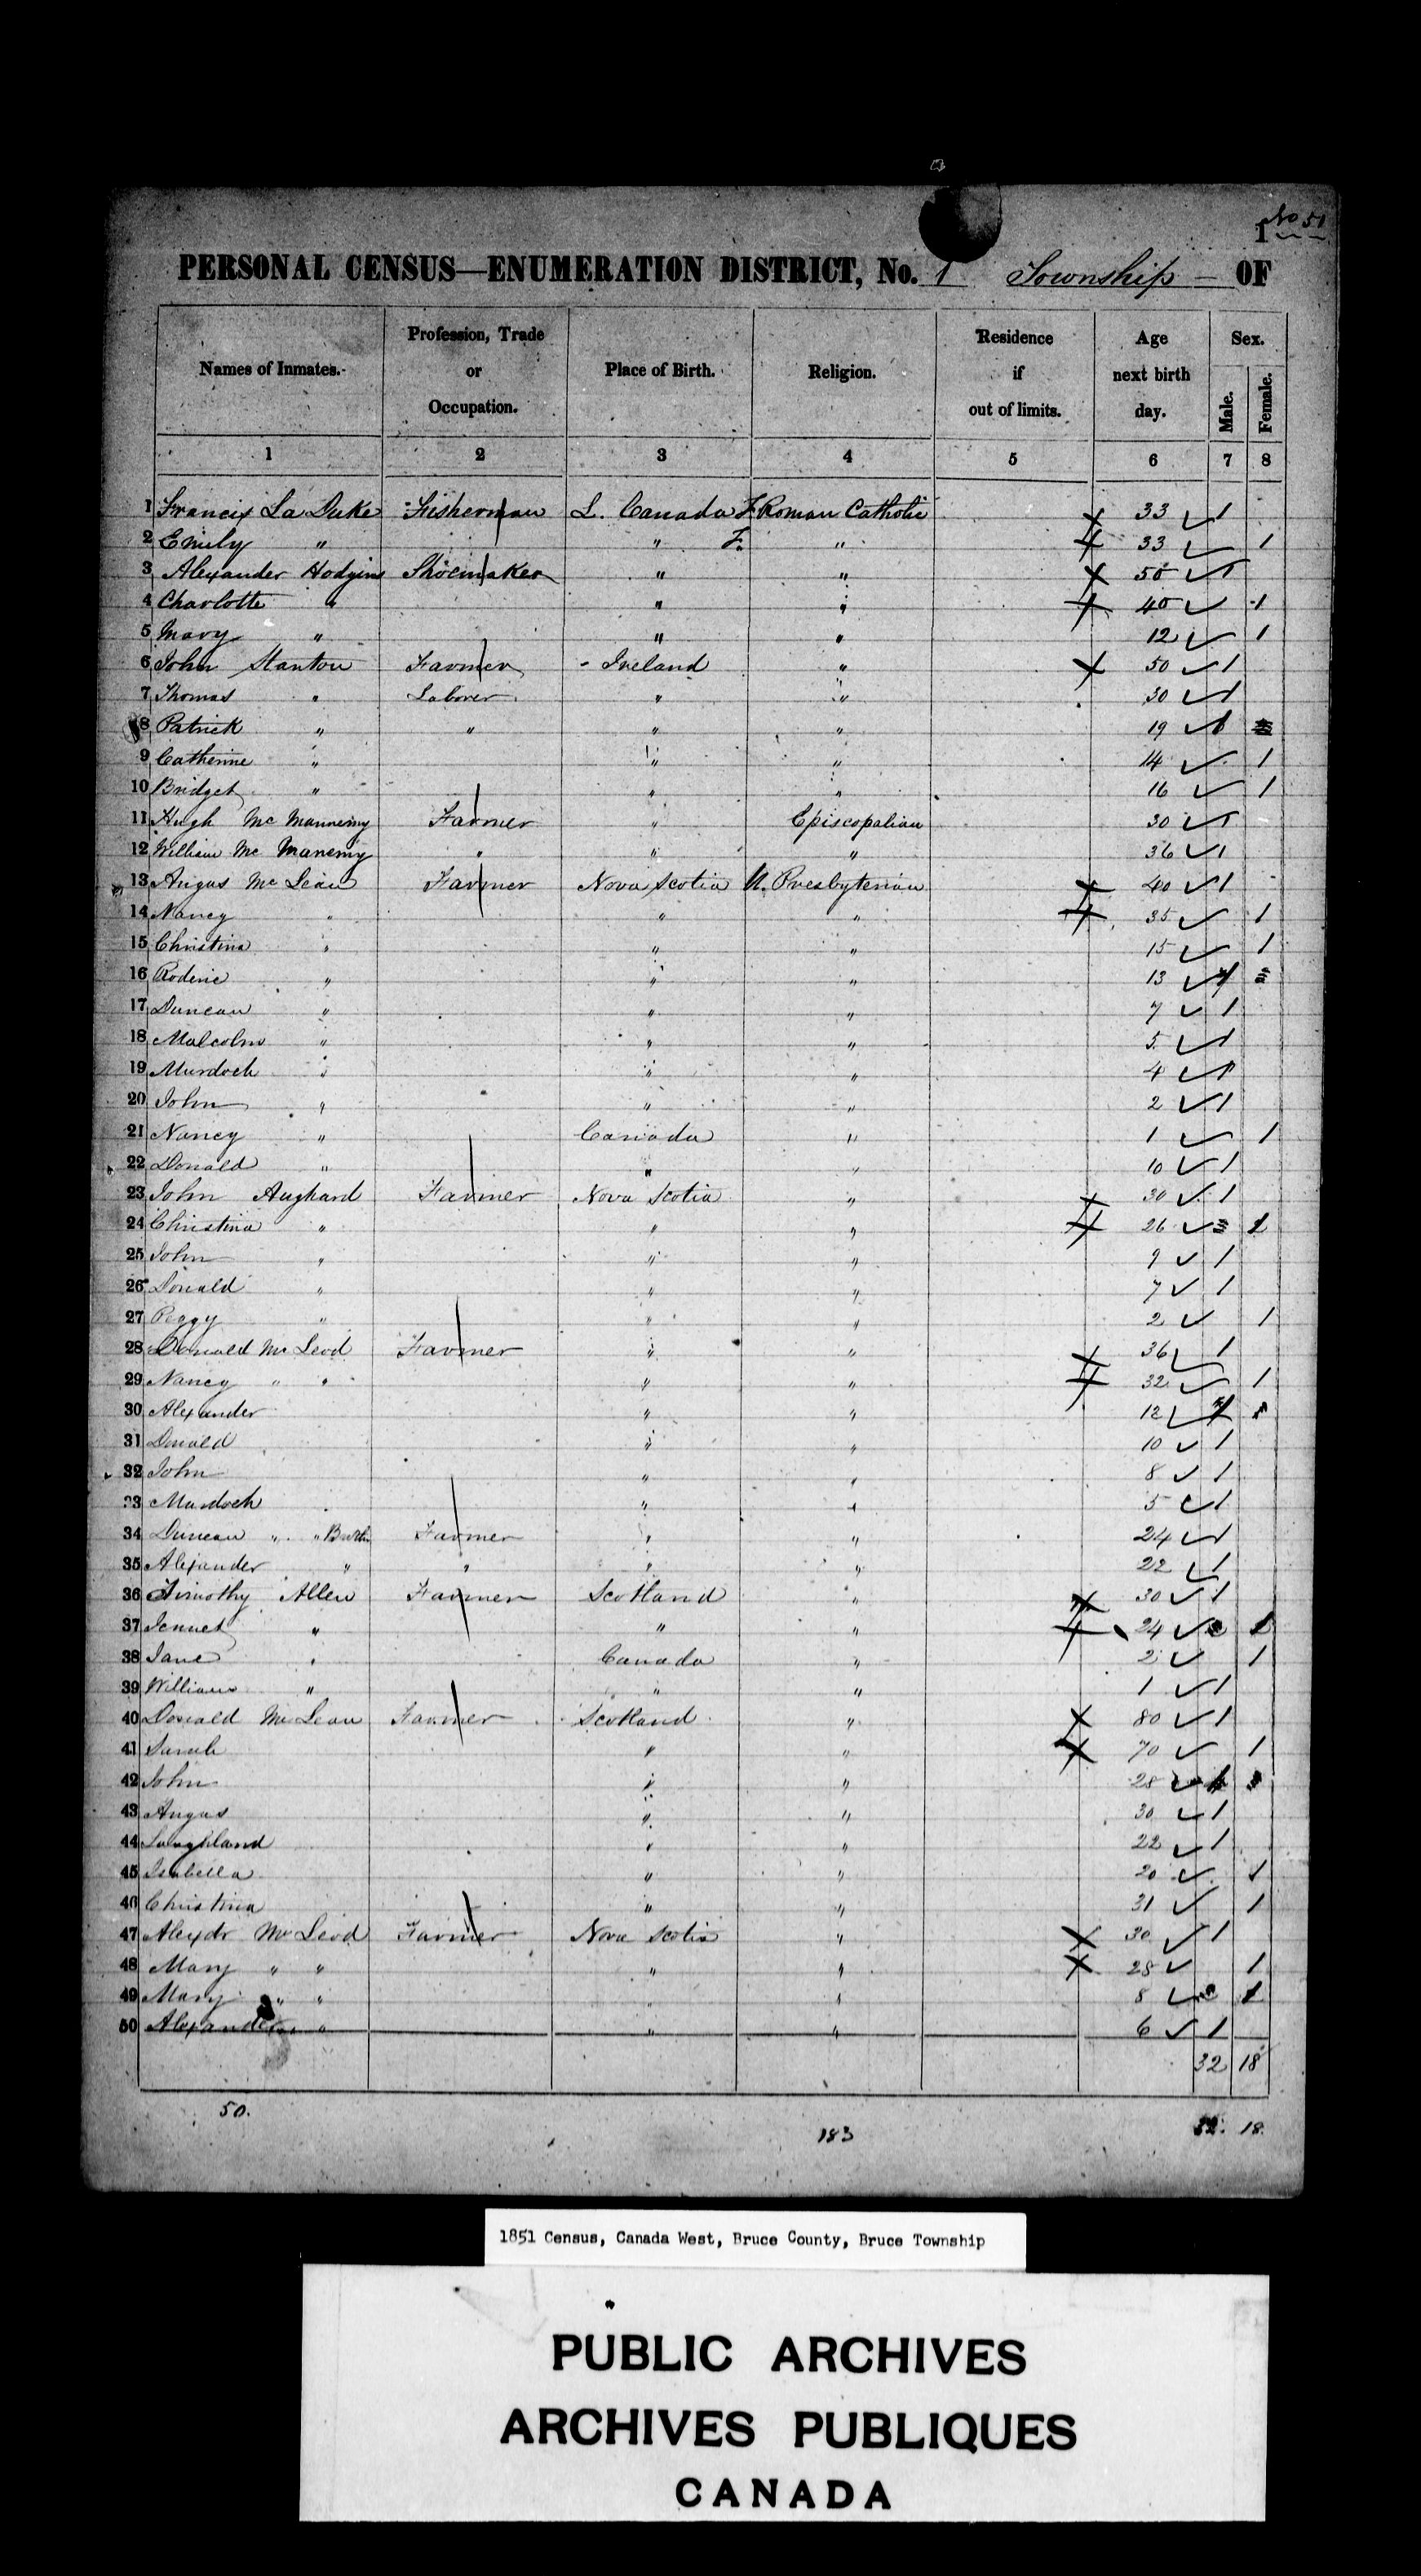 No 51
1
PERSONAL CENSUS—ENUMERATION DISTRICT, No. 1 Township — OF
Names of Inmates. Profession, Trade or Occupation. Place of Birth. Religion. Residence if out of limits. Age next birth day. Sex. Male. Female.
1 2 3 4 5 6 7 8
1 Francis La Duke Fisherman L. Canada F. Roman Catholic 33 1
2 Emily " " F. " 33 1
3 Alexander Hodgins Shoemaker " " 50 1
4 Charlotte " " " 40 1
5 Mary " " " 12 1
6 John Stanton Farmer - Ireland " 50 1
7 Thomas " Laborer " " 30 1
8 Patrick " " " " 19 1
9 Catherine " " " 14 1
10 Bridget " " " 16 1
11 Hugh Mc Mannemy Farmer " Episcopalian 30 1
12 William Mc Manemy " " " 36 1
13 Angus Mc Lean Farmer Nova Scotia Presbyterian 40 1
14 Nancy " " " 35 1
15 Christina " " " 15 1
16 Roderic " " " 13 1
17 Duncan " " " 7 1
18 Malcolm " " " 5 1
19 Murdoch " " " 4 1
20 John " " " 2 1
21 Nancy " Canada " 1 1
22 Donald " " " 10 1
23 John Aughard Farmer Nova Scotia " 30 1
24 Christina " " " 26 1
25 John " " " 9 1
26 Donald " " " 7 1
27 Peggy " " " 2 1
28 Donald Mc Leod Farmer " " 36 1
29 Nancy " " " " 32 1
30 Alexander " " 12 1
31 Donald " " 10 1
32 John " " 8 1
33 Murdoch " " 5 1
34 Duncan " " Farmer " " 24 1
35 Alexander " " " " 22 1
36 Timothy Allen Farmer Scotland " 30 1
37 Jennet " " " 24 1
38 Jane " Canada " 2 1
39 William " " " 1 1
40 Donald Mc Lean Farmer Scotland " 80 1
41 Sarah " " 70 1
42 John " " 28
43 Angus " " 30 1
44 Laughland " " 22 1
45 Isabella " " 20 1
46 Christina " " 31 1
47 Alexdr Mc Leod Farmer Nova Scotia " 30 1
48 Mary " " " " 28 1
49 Mary " " " " 8 1
50 Alexander " " " 6 1
32 18
50.
183
32. 18.
1851 Census, Canada West, Bruce County, Bruce Township
PUBLIC ARCHIVES
ARCHIVES PUBLIQUES
CANADA